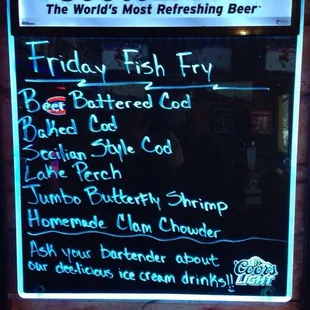 The World's Most Refreshing Beer
Friday Fish Fry
Beer Battered Cod
Baked Cod
Secilian Style Cod
Lake Perch
Jumbo Butterfly Shrimp
Homemade Clam Chowder
Ask your bartender about
our dee.licious ice cream drinks!!
Coors
LIGHT